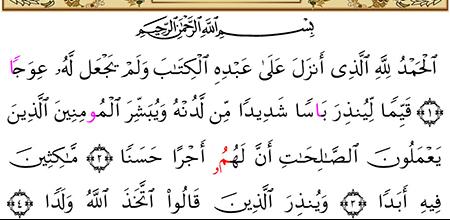 بِسْمِ ٱللَّهِ ٱلرَّحْمَٰنِ ٱلرَّحِيمِ
ٱلْحَمْدُ لِلَّهِ ٱلَّذِى أَنزَلَ عَلَىٰ عَبْدِهِ ٱلْكِتَٰبَ وَلَمْ يَجْعَل لَّهُۥ عِوَجًا
﴿١﴾ قَيِّمًا لِّيُنذِرَ بَاسًا شَدِيدًا مِّن لَّدُنْهُ وَيُبَشِّرَ ٱلْمُومِنِينَ ٱلَّذِينَ
يَعْمَلُونَ ٱلصَّٰلِحَٰتِ أَنَّ لَهُمُۥ أَجْرًا حَسَنًا ﴿٢﴾ مَّٰكِثِينَ
فِيهِ أَبَدًا ﴿٣﴾ وَيُنذِرَ ٱلَّذِينَ قَالُوا۟ ٱتَّخَذَ ٱللَّهُ وَلَدًا ﴿٤﴾